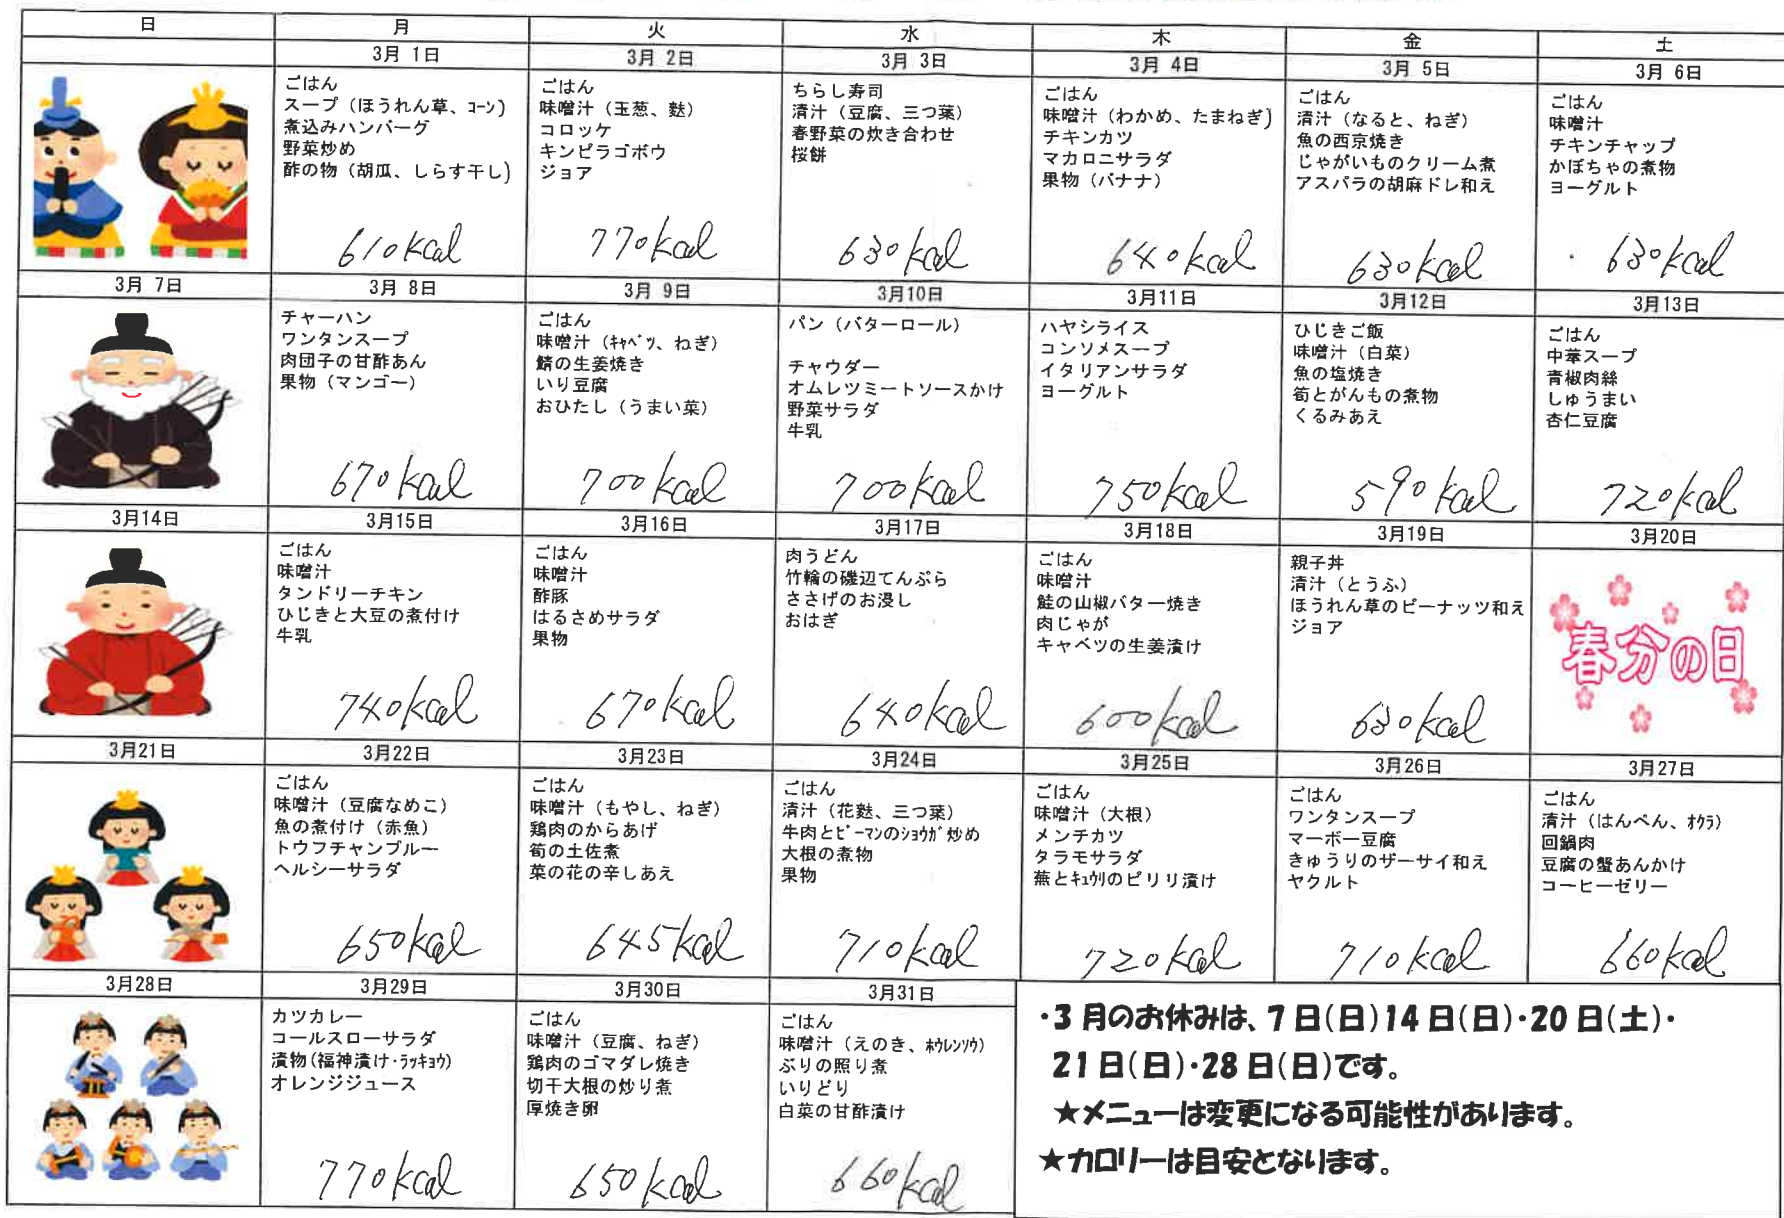 日 月 火 水 木 金 土
3月 1日 3月 2日 3月 3日 3月 4日 3月 5日 3月 6日
ごはん
スープ（ほうれん草、ｺｰﾝ）
煮込みハンバーグ
野菜炒め
酢の物（胡瓜、しらす干し）
610kcal
ごはん
味噌汁（玉葱、麩）
コロッケ
キンピラゴボウ
ジョア
770kcal
ちらし寿司
清汁（豆腐、三つ葉）
春野菜の炊き合わせ
桜餅
630kcal
ごはん
味噌汁（わかめ、たまねぎ）
チキンカツ
マカロニサラダ
果物（バナナ）
640kcal
ごはん
清汁（なると、ねぎ）
魚の西京焼き
じゃがいものクリーム煮
アスパラの胡麻ドレ和え
630kcal
ごはん
味噌汁
チキンチャップ
かぼちゃの煮物
ヨーグルト
630kcal
3月 7日 3月 8日 3月 9日 3月10日 3月11日 3月12日 3月13日
チャーハン
ワンタンスープ
肉団子の甘酢あん
果物（マンゴー）
670kcal
ごはん
味噌汁（ｷｬﾍﾞﾂ、ねぎ）
鯖の生姜焼き
いり豆腐
おひたし（うまい菜）
700kcal
パン（バターロール）
チャウダー
オムレツミートソースかけ
野菜サラダ
牛乳
700kcal
ハヤシライス
コンソメスープ
イタリアンサラダ
ヨーグルト
750kcal
ひじきご飯
味噌汁（白菜）
魚の塩焼き
筍とがんもの煮物
くるみあえ
590kcal
ごはん
中華スープ
青椒肉絲
しゅうまい
杏仁豆腐
720kcal
3月14日 3月15日 3月16日 3月17日 3月18日 3月19日 3月20日
ごはん
味噌汁
タンドリーチキン
ひじきと大豆の煮付け
牛乳
740kcal
ごはん
味噌汁
酢豚
はるさめサラダ
果物
670kcal
肉うどん
竹輪の磯辺てんぷら
ささげのお浸し
おはぎ
640kcal
ごはん
味噌汁
鮭の山椒バター焼き
肉じゃが
キャベツの生姜漬け
600kcal
親子丼
清汁（とうふ）
ほうれん草のピーナッツ和え
ジョア
630kcal
春分の日
3月21日 3月22日 3月23日 3月24日 3月25日 3月26日 3月27日
ごはん
味噌汁（豆腐なめこ）
魚の煮付け（赤魚）
トウフチャンブルー
ヘルシーサラダ
650kcal
ごはん
味噌汁（もやし、ねぎ）
鶏肉のからあげ
筍の土佐煮
菜の花の辛しあえ
645kcal
ごはん
清汁（花麩、三つ葉）
牛肉とﾋﾟｰﾏﾝのｼｮｳｶﾞ炒め
大根の煮物
果物
710kcal
ごはん
味噌汁（大根）
メンチカツ
タラモサラダ
蕪とｷｭｳﾘのピリリ漬け
720kcal
ごはん
ワンタンスープ
マーボー豆腐
きゅうりのザーサイ和え
ヤクルト
710kcal
ごはん
清汁（はんぺん、ｵｸﾗ）
回鍋肉
豆腐の蟹あんかけ
コーヒーゼリー
660kcal
3月28日 3月29日 3月30日 3月31日
カツカレー
コールスローサラダ
漬物（福神漬け･ﾗｯｷｮｳ）
オレンジジュース
770kcal
ごはん
味噌汁（豆腐、ねぎ）
鶏肉のゴマダレ焼き
切干大根の炒り煮
厚焼き卵
650kcal
ごはん
味噌汁（えのき、ﾎｳﾚﾝｿｳ）
ぶりの照り煮
いりどり
白菜の甘酢漬け
660kcal
・3月のお休みは、7日（日）14日（日）・20日（土）・
21日（日）・28日（日）です。
★メニューは変更になる可能性があります。
★カロリーは目安となります。